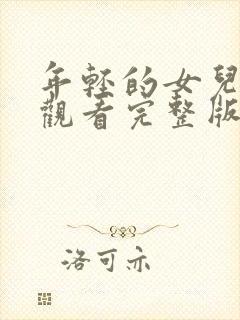 年輕的女兒
觀看完整版
洛可亦